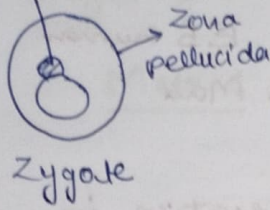 Zona
pellucida
Zygote